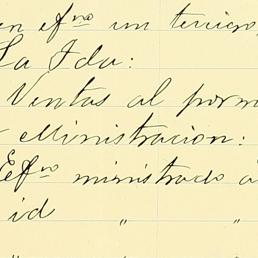 en ef.no un tercio
La Ida:
Ventas al porm
Ministracion:
Ef.no ministrado a
id " "